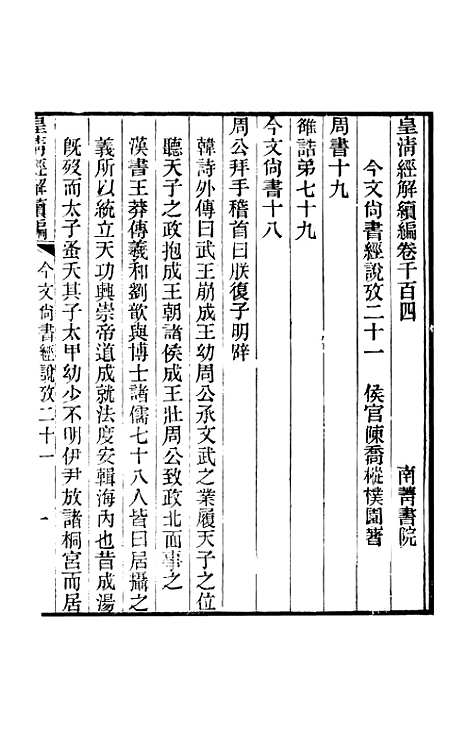 皇清經解續編卷千百四　南菁書院
今文尚書經說攷二十一　侯官陳喬樅樸園著
周書十九
雒誥弟七十九
今文尚書十八
周公拜手稽首曰朕復子明辟
韓詩外傳曰武王崩成王幼周公承文武之業履天子之位
聽天子之政抱成王朝諸侯成王壯周公致政北面事之
漢書王莽傳羲和劉歆與博士諸儒七十八人皆曰居攝之
義所以統立天功興崇帝道成就法度安輯海內也昔成湯
旣歿而太子蚤夭其子太甲幼少不明伊尹放諸桐宮而居
皇清經解續編　今文尚書經說攷二十一　一